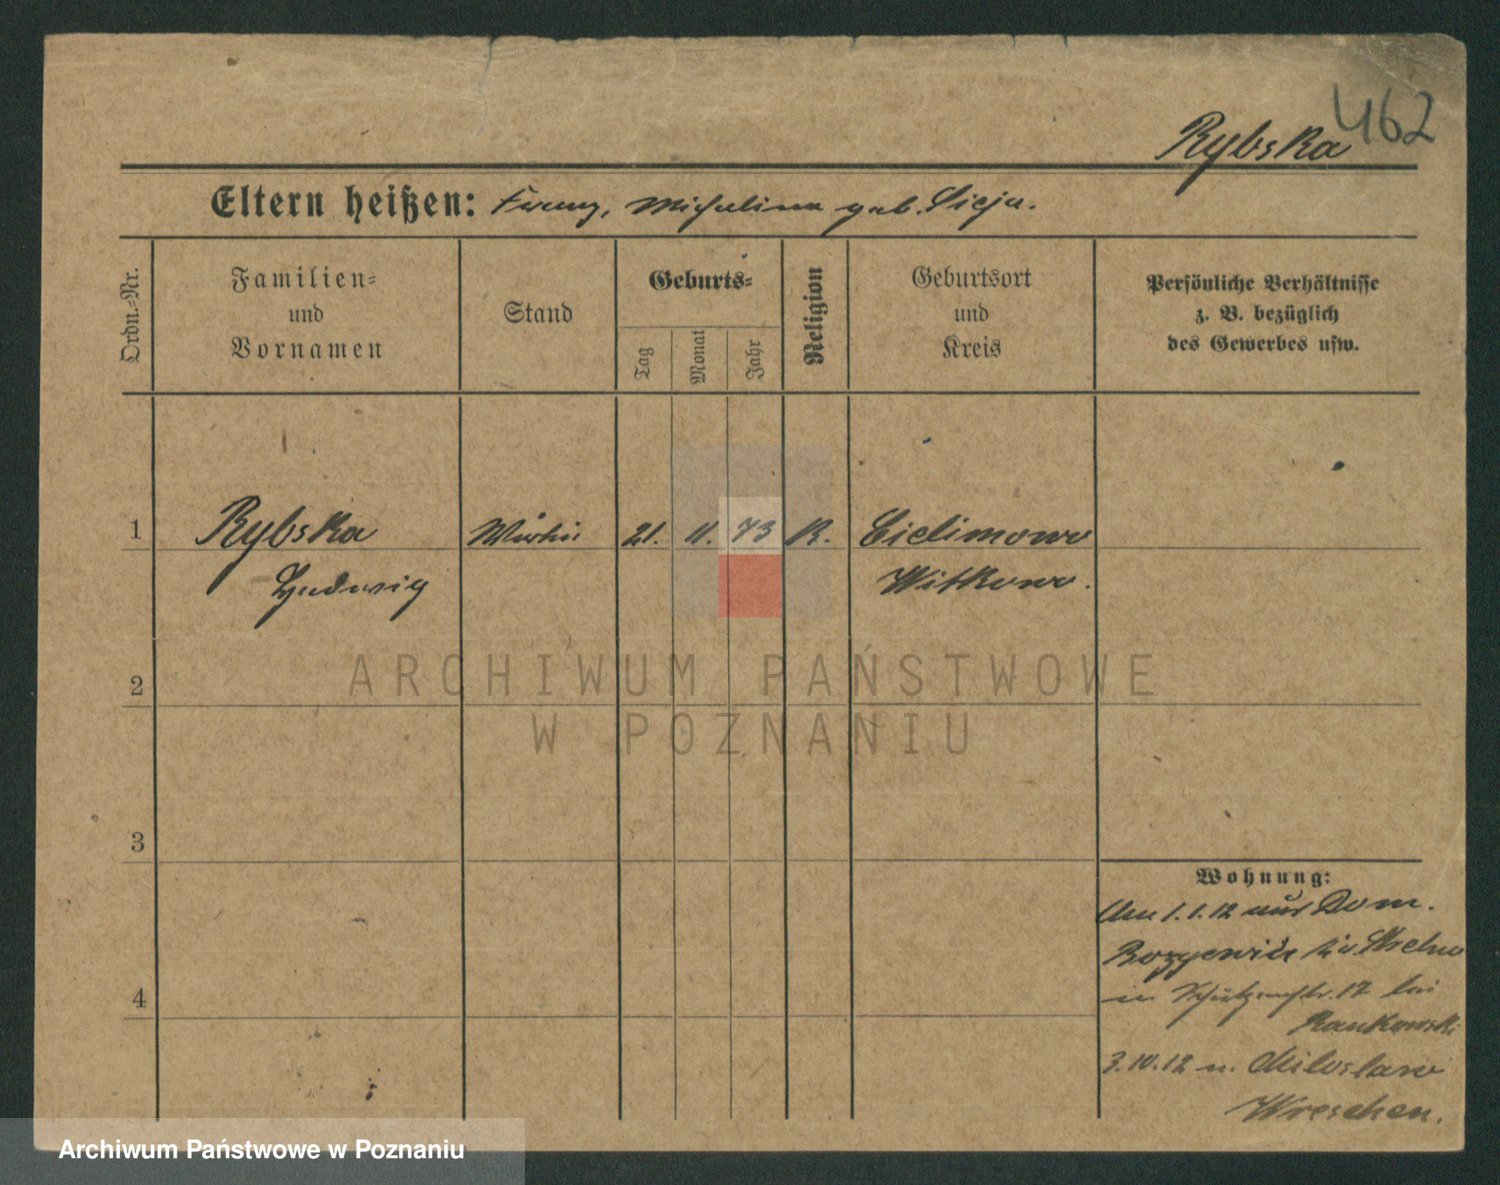 462
Rybska
Eltern heißen: Franz, Michalina geb.
Ordn.-Nr.
Familien-
und
Vornamen
Stand
Geburts-
Tag
Monat
Jahr
Religion
Geburtsort
und
Kreis
Persönliche Verhältnisse
z. B. bezüglich
des Gewerbes usw.
1
Rybska
21. 11. 73
Cielimowo
Ludwig
Witkowo.
2
3
4
Wohnung:
Am 1.1.12 aus Dom.
in Schützenstr. 17 bei
Rankowski
3.10.12 n. Miloslaw
Wreschen.
ARCHIWUM PAŃSTWOWE
W POZNANIU
Archiwum Państwowe w Poznaniu